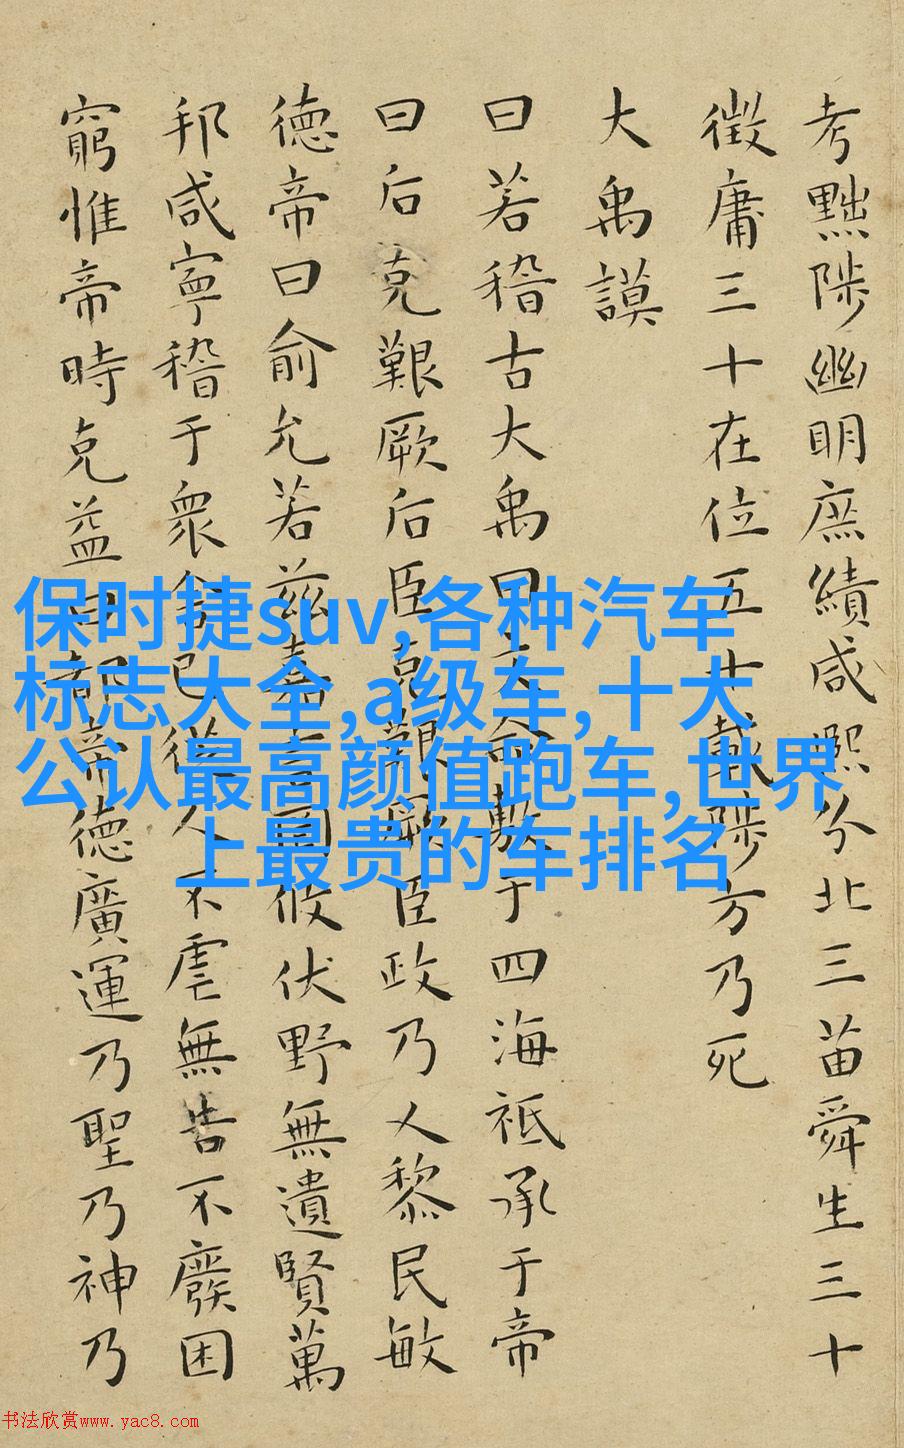 考黜陟幽明庶績咸熙分北三苗舜生三十
徵庸三十在位五十載陟方乃死
大禹謨
曰若稽古大禹曰文命敷于四海祗承于帝
曰后克艱厥后臣克艱厥臣政乃乂黎民敏
德帝曰俞允若茲嘉言罔攸伏野無遺賢萬
邦咸寧稽于衆舍己從人不虐無告不廢困
窮惟帝時克益曰都帝德廣運乃聖乃神乃
保时捷suv,各种汽车
标志大全,a级车,十大
公认最高颜值跑车,世界
上最贵的车排名
书法欣赏www.yac8.com